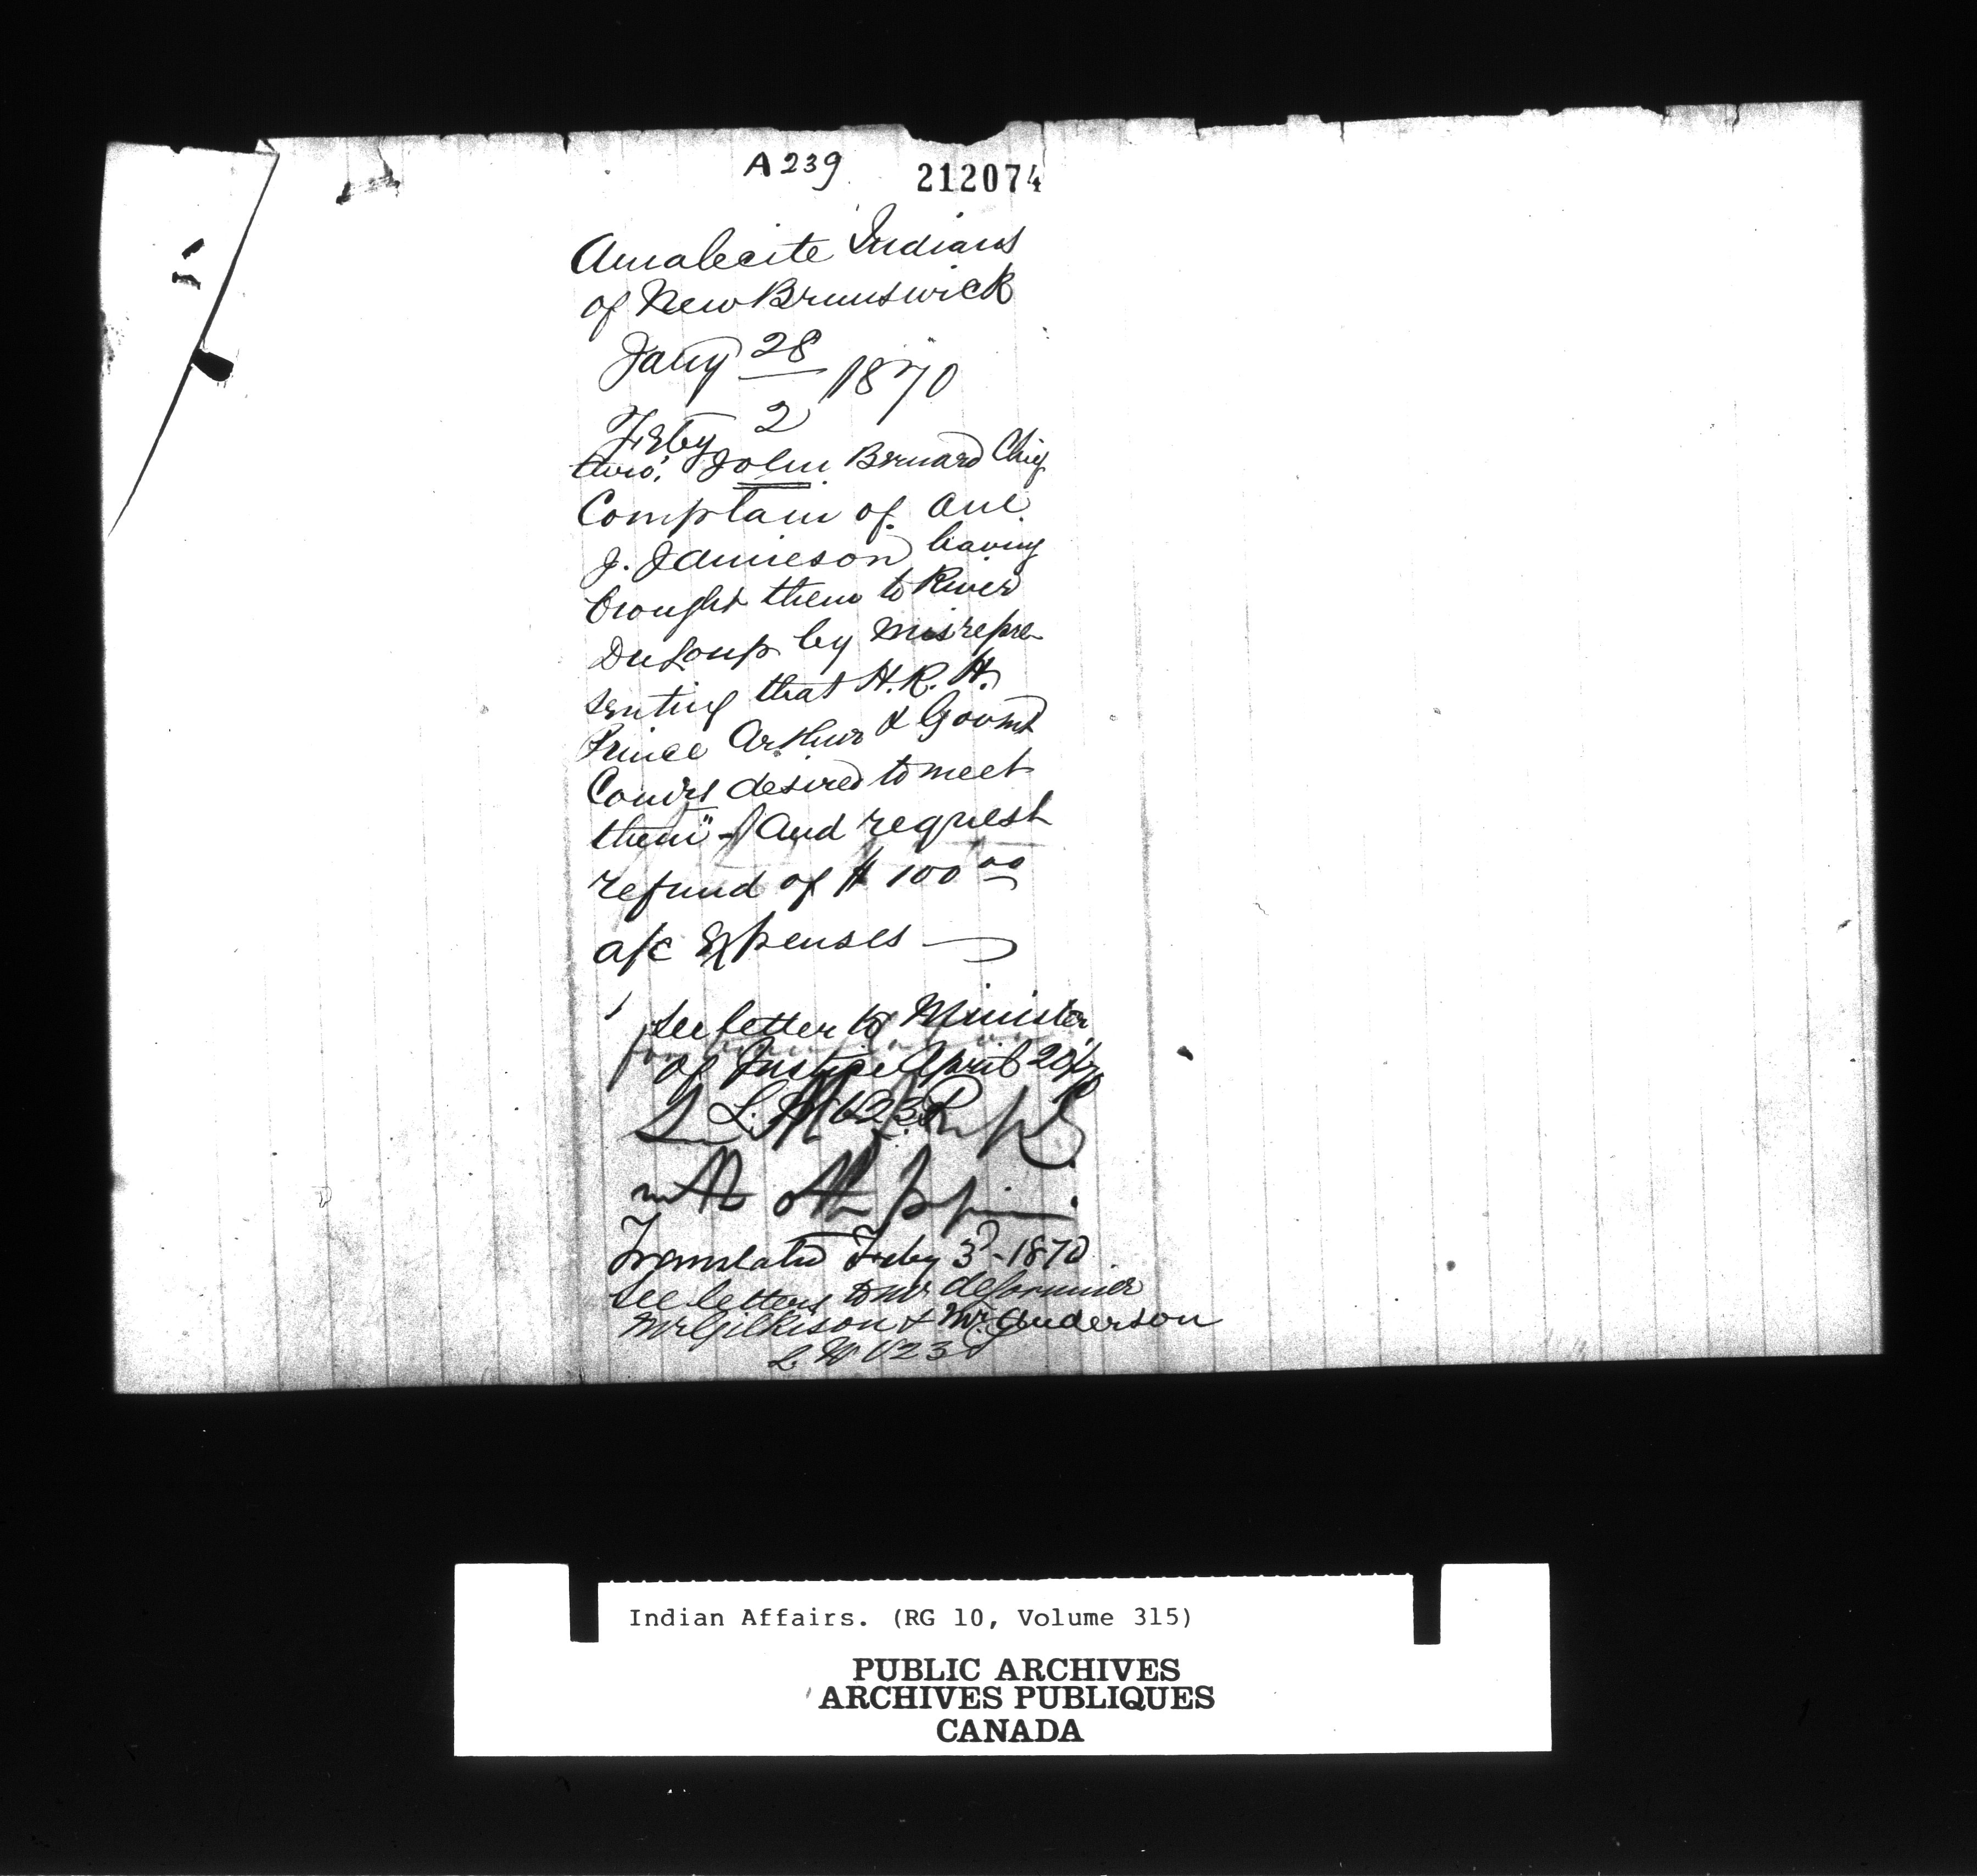 A 239 212074
Amalecite Indians
of New Brunswick
Jany 28 1870
Feby 2
thro' John Bernard Chief
Complain of one
J. Jamieson having
brought them to River
DuLoup by misrepre
senting that H.R.H.
Prince Arthur & Govmt
desired to meet
them" - And request
refund of $ 100 00
a/c Expenses
See letter to Minister
of Justice April 20/70
L.
Translated Feby 3d - 1870
See letters to Mr
Mr Gilkison & Mr Anderson
L.
Indian Affairs. (RG 10, Volume 315)
PUBLIC ARCHIVES
ARCHIVES PUBLIQUES
CANADA